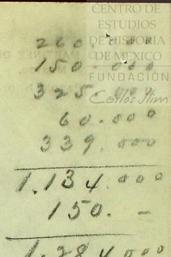 CENTRO DE
ESTUDIOS
DE HISTORIA
DE MÉXICO
FUNDACIÓN
Carlos Slim
260.000
150.000
325.000
60.000
339.000
1.134.000
150.—
1.284.000